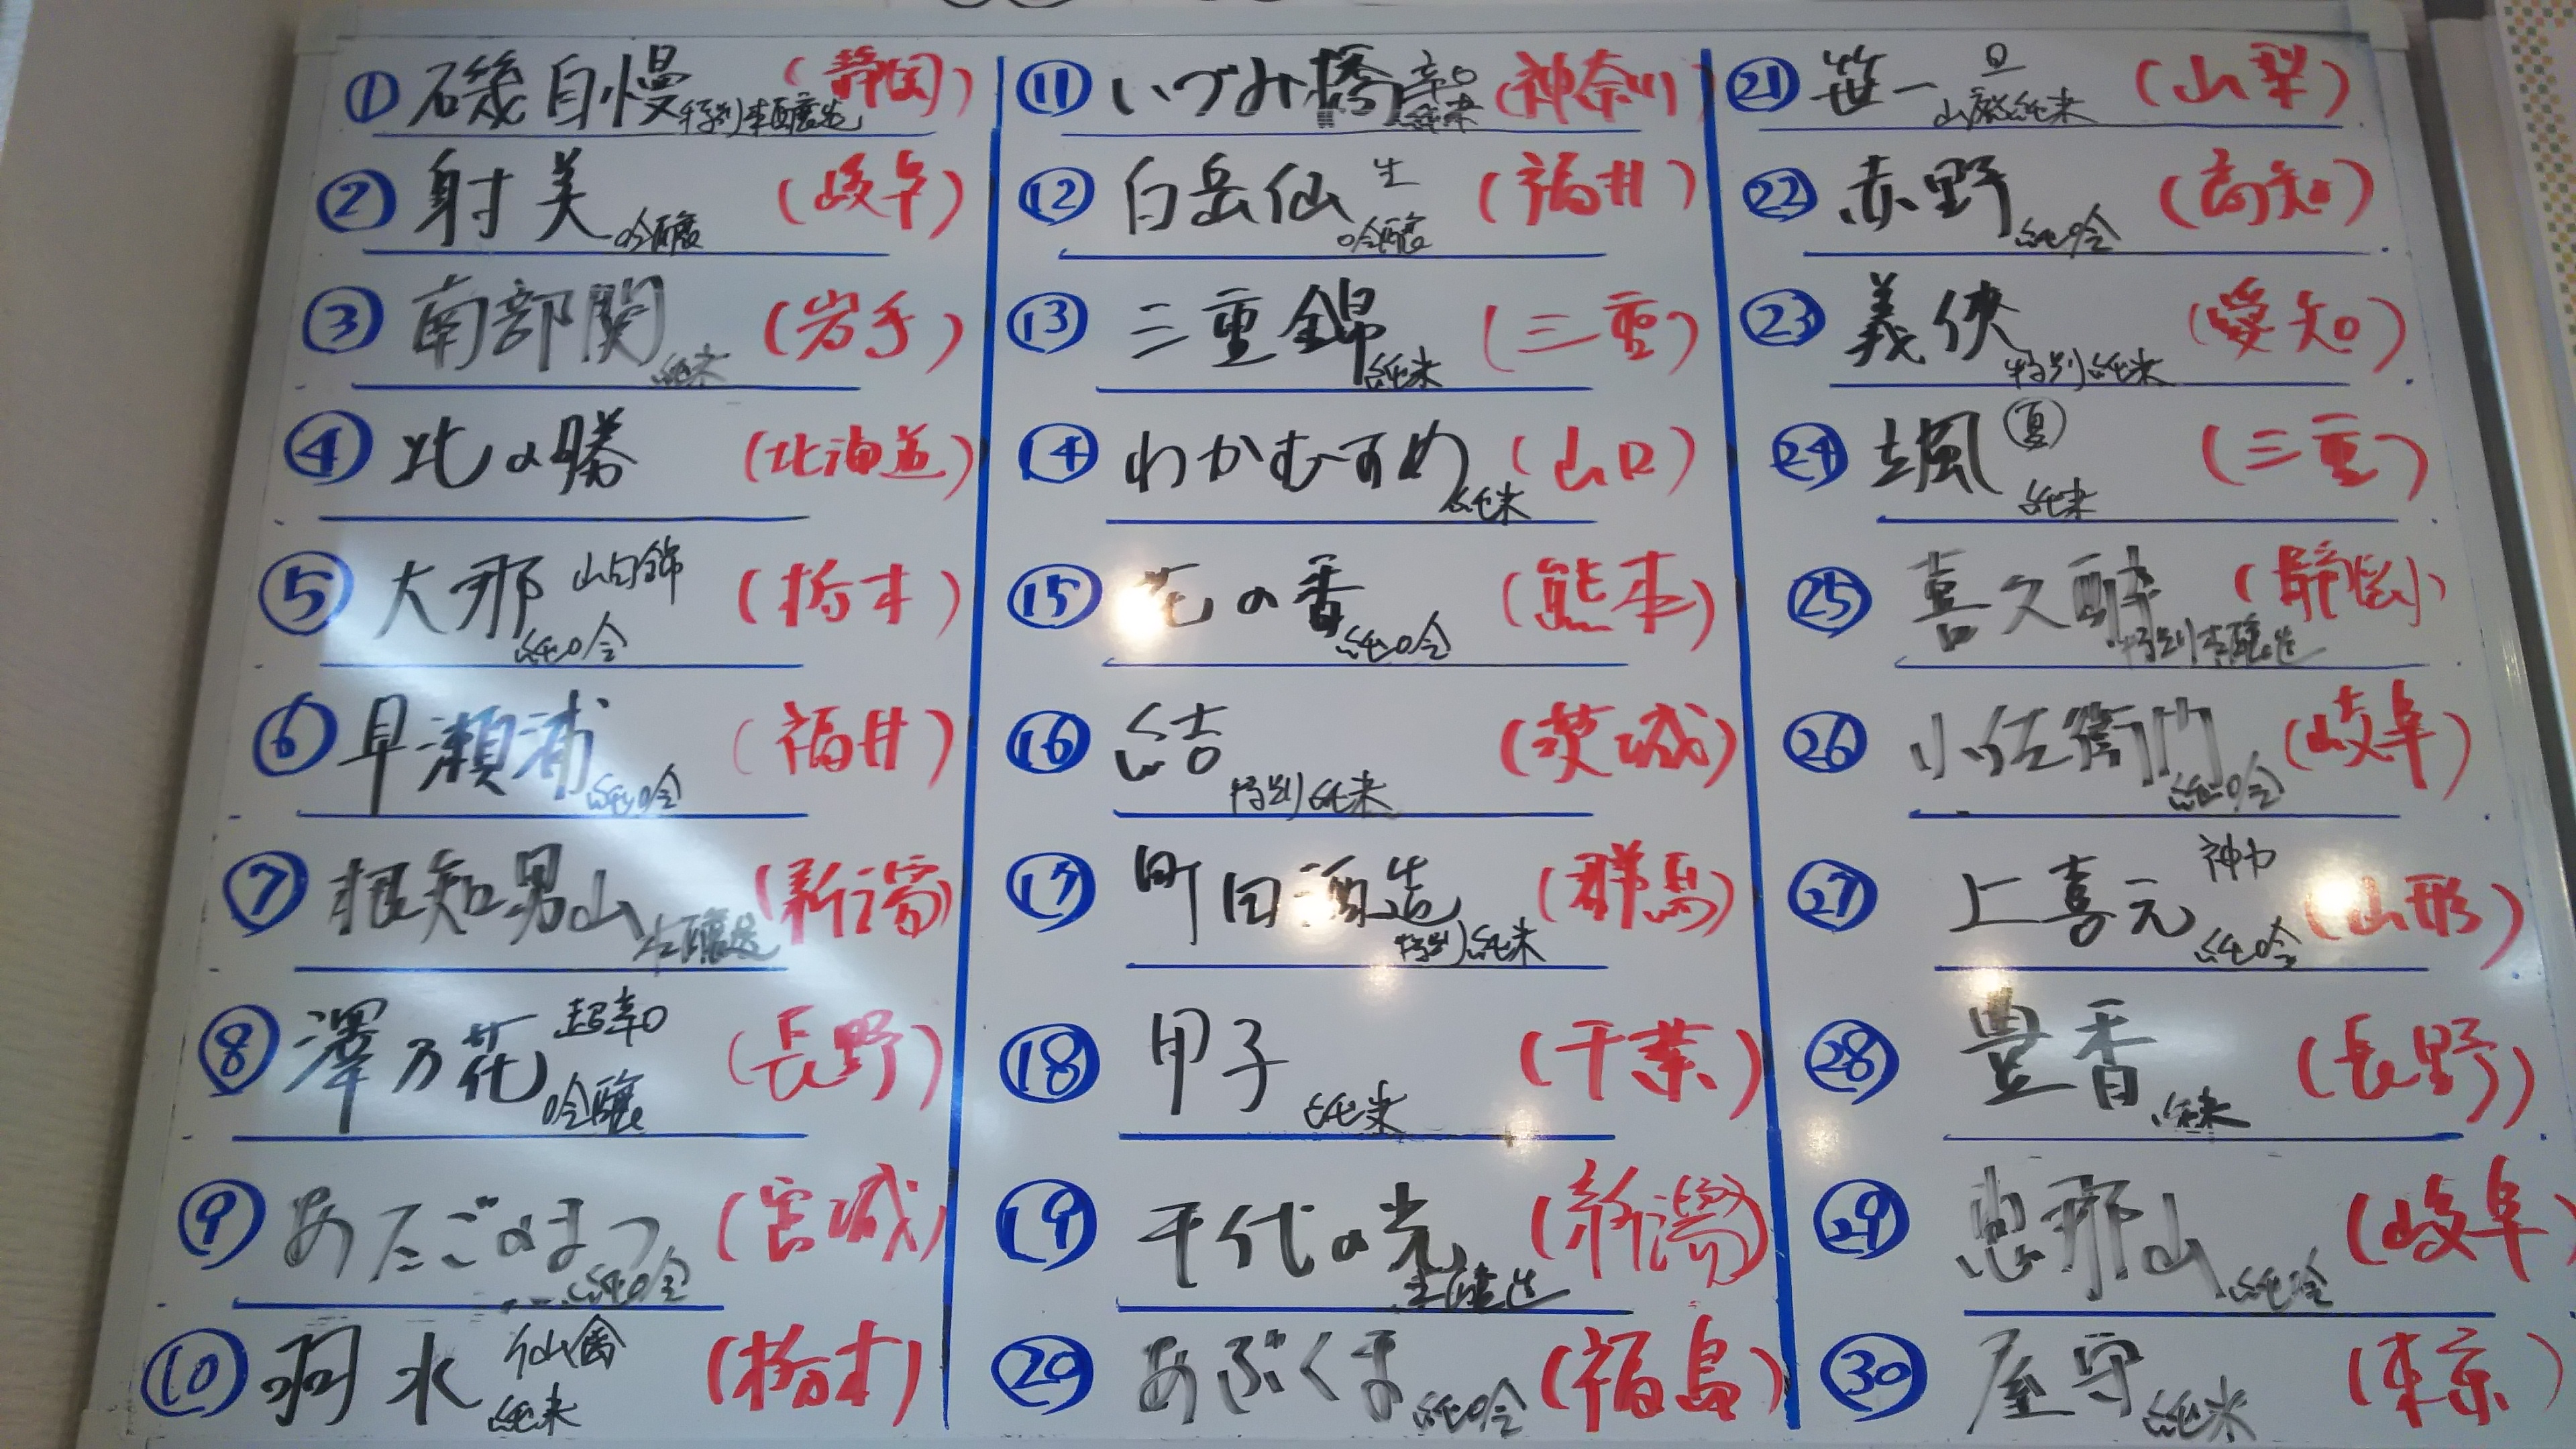 ① 磯自慢 特別本醸造 (静岡)
② 射美 吟醸 (岐阜)
③ 南部関 純米 (岩手)
④ 北の勝 (北海道)
⑤ 大那 山田錦 純吟 (栃木)
⑥ 早瀬浦 純吟 (福井)
⑦ 根知男山 本醸造 (新潟)
⑧ 澤乃花 超辛口 吟醸 (長野)
⑨ あたごのまつ 純吟 (宮城)
⑩ 羽水 仙禽 純米 (栃木)
⑪ いづみ橋 辛口 純米 (神奈川)
⑫ 白岳仙 生 吟醸 (福井)
⑬ 三重錦 純米 (三重)
⑭ わかむすめ 純米 (山口)
⑮ 花の香 純吟 (熊本)
⑯ 結 特別純米 (茨城)
⑰ 町田酒造 特別純米 (群馬)
⑱ 甲子 純米 (千葉)
⑲ 千代の光 本醸造 (新潟)
⑳ あぶくま 純吟 (福島)
㉑ 笹一 旦 山廃純米 (山梨)
㉒ 赤野 純吟 (高知)
㉓ 義侠 特別純米 (愛知)
㉔ 颯 夏 純米 (三重)
㉕ 喜久酔 特別本醸造 (静岡)
㉖ 小左衛門 純吟 (岐阜)
㉗ 上喜元 神力 純吟 (山形)
㉘ 豊香 純米 (長野)
㉙ 恵那山 純吟 (岐阜)
㉚ 屋守 純米 (東京)